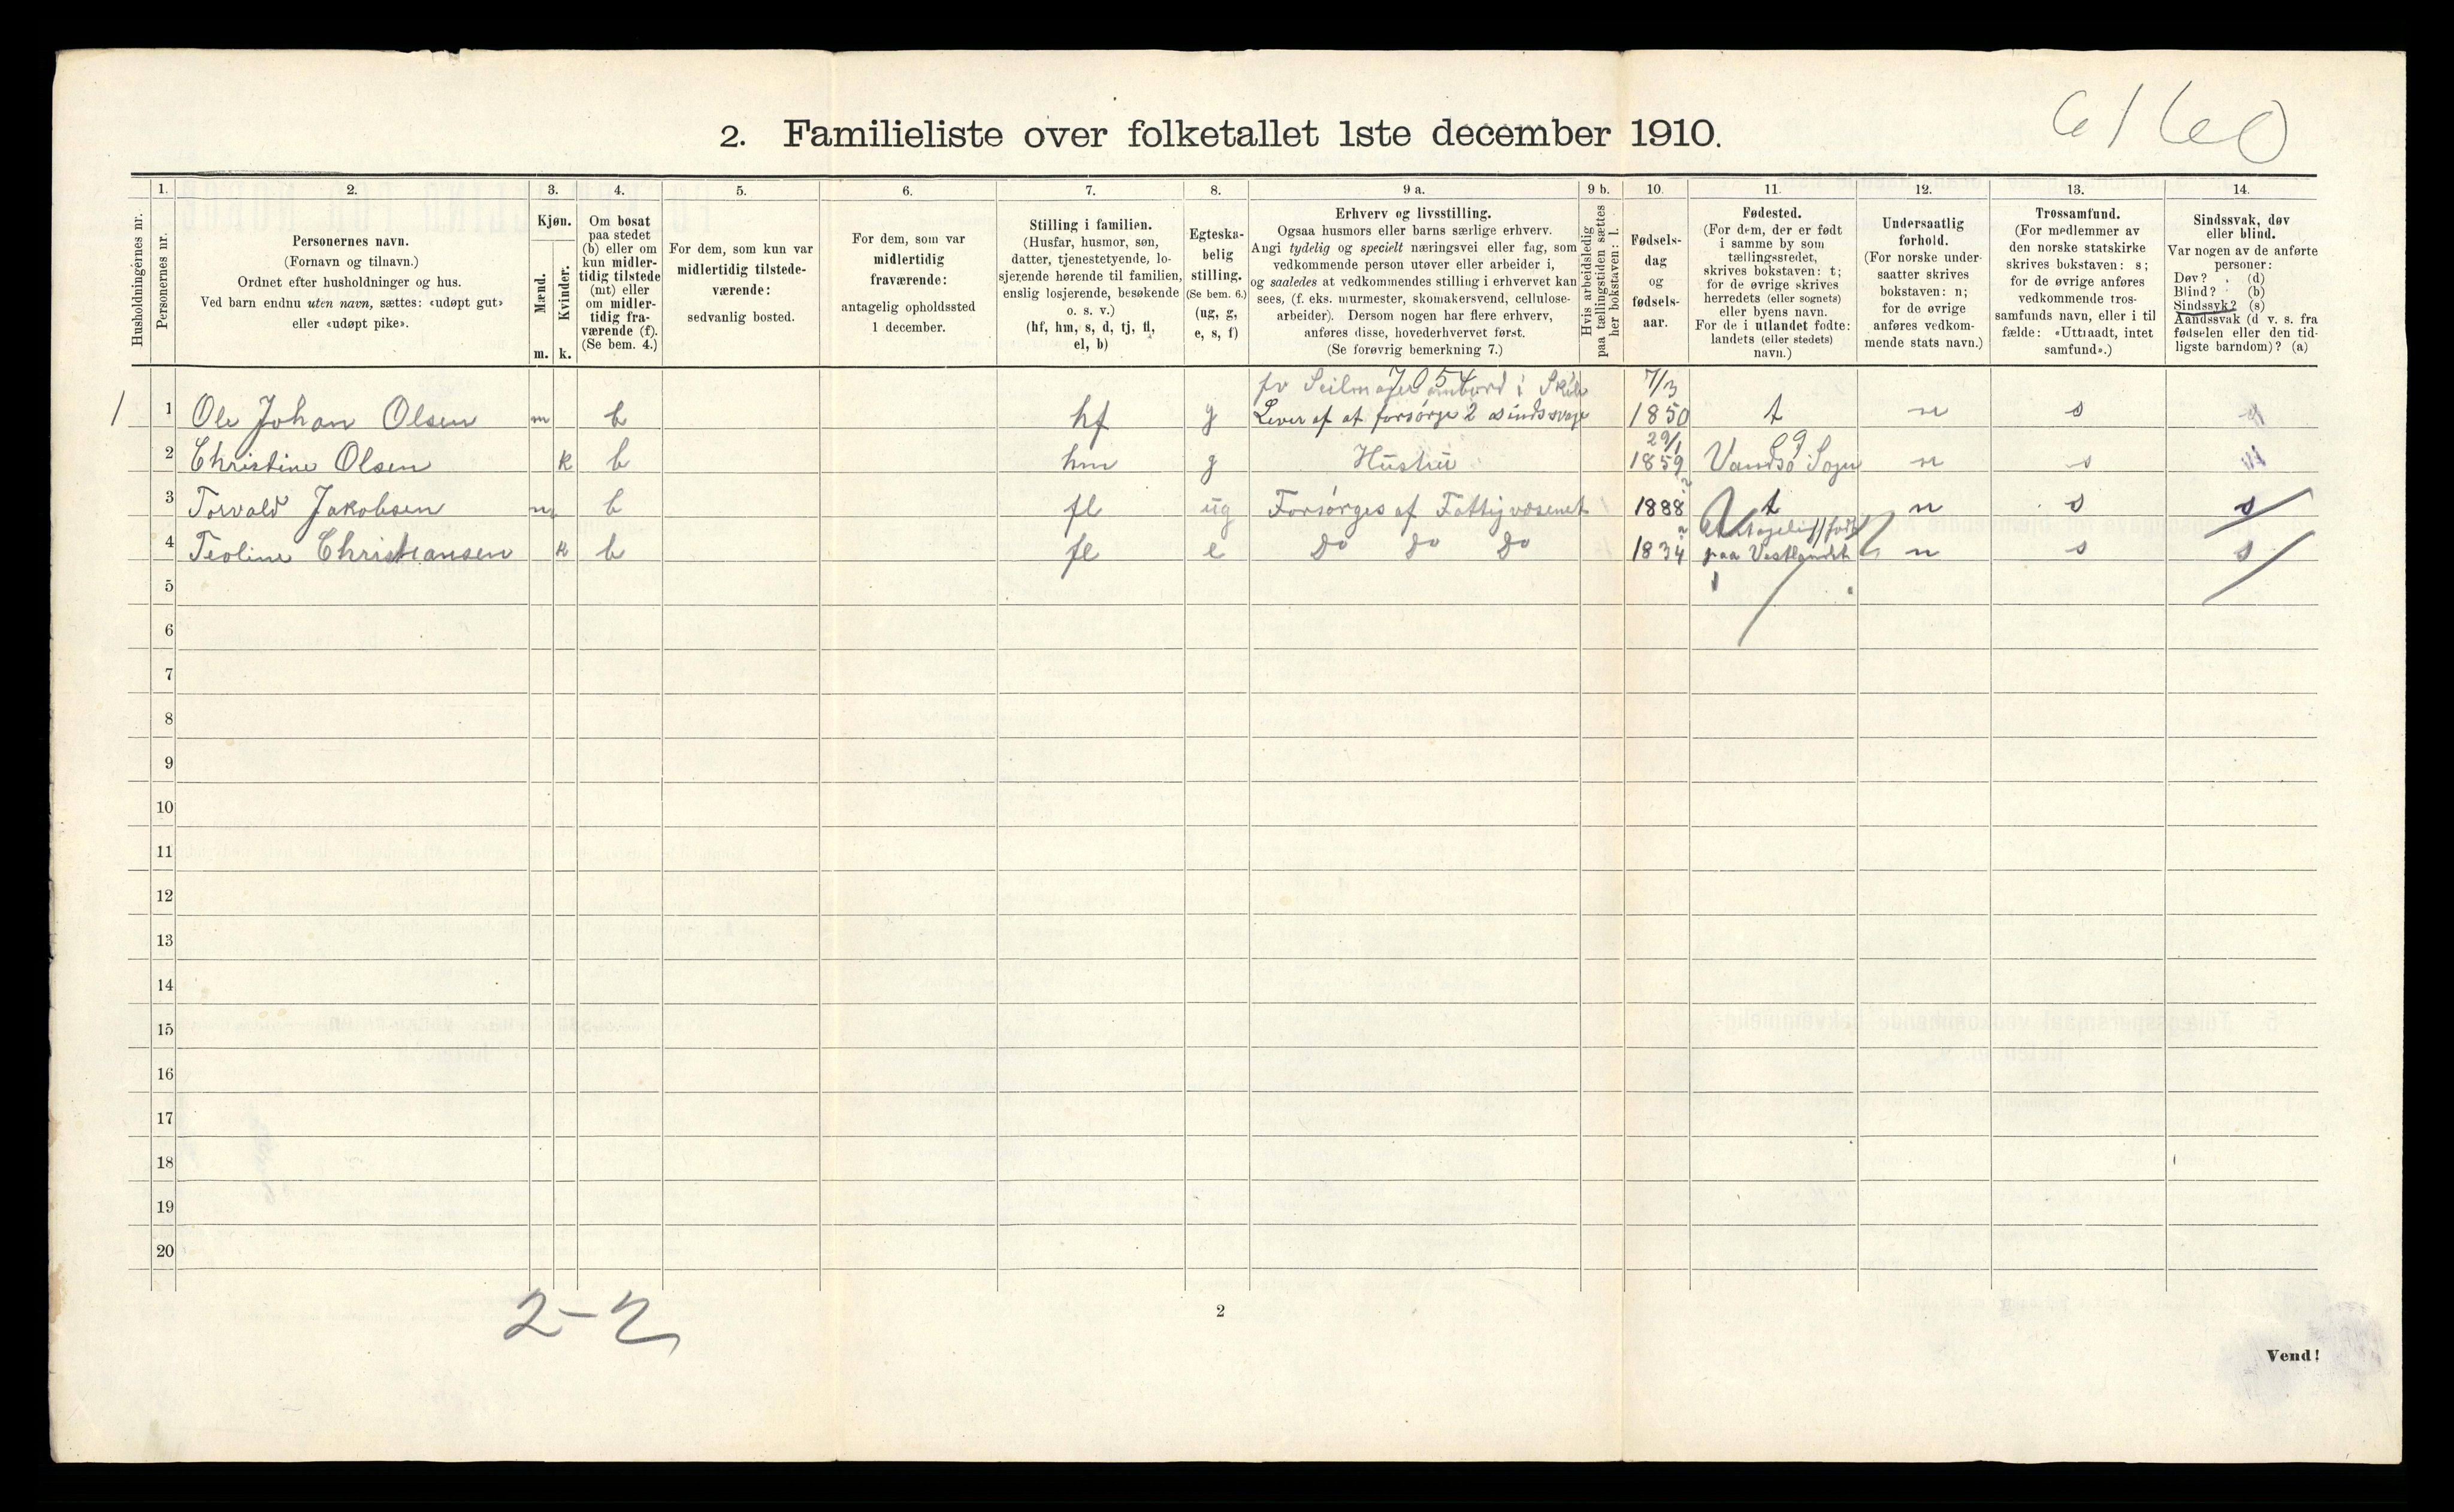 6160
2. Familieliste over folketallet 1ste december 1910.
Husholdningernes nr.
1. Personernes nr.
2. Personernes navn.
(Fornavn og tilnavn.)
Ordnet efter husholdninger og hus.
Ved barn endnu uten navn, sættes: «udøpt gut»
eller «udøpt pike».
3. Kjøn.
Mænd. m.
Kvinder. k.
4. Om bosat
paa stedet
(b) eller om
kun midler-
tidig tilstede
(mt) eller
om midler-
tidig fra-
værende (f).
(Se bem. 4.)
5. For dem, som kun var
midlertidig tilstede-
værende:
sedvanlig bosted.
6. For dem, som var
midlertidig
fraværende:
antagelig opholdssted
1 december.
7. Stilling i familien.
(Husfar, husmor, søn,
datter, tjenestetyende, lo-
sjerende hørende til familien,
enslig losjerende, besøkende
o. s. v.)
(hf, hm, s, d, tj, fl,
el, b)
8. Egteska-
belig
stilling.
(Se bem. 6.)
(ug, g,
e, s, f)
9 a. Erhverv og livsstilling.
Ogsaa husmors eller barns særlige erhverv.
Angi tydelig og specielt næringsvei eller fag, som
vedkommende person utøver eller arbeider i,
og saaledes at vedkommendes stilling i erhvervet kan
sees, (f. eks. murmester, skomakersvend, cellulose-
arbeider). Dersom nogen har flere erhverv,
anføres disse, hovederhvervet først.
(Se forøvrig bemerkning 7.)
9 b. Hvis arbeidsledig
paa tællingstiden sættes
her bokstaven: l.
10. Fødsels-
dag
og
fødsels-
aar.
11. Fødested.
(For dem, der er født
i samme by som
tællingsstedet,
skrives bokstaven: t;
for de øvrige skrives
herredets (eller sognets)
eller byens navn.
For de i utlandet fødte:
landets (eller stedets)
navn.)
12. Undersaatlig
forhold.
(For norske under-
saatter skrives
bokstaven: n;
for de øvrige
anføres vedkom-
mende stats navn.)
13. Trossamfund.
(For medlemmer av
den norske statskirke
skrives bokstaven: s;
for de øvrige anføres
vedkommende tros-
samfunds navn, eller i til
fælde: «Uttraadt, intet
samfund».)
14. Sindssvak, døv
eller blind.
Var nogen av de anførte
personer:
Døv? (d)
Blind? (b)
Sindssvk? (s)
Aandssvak (d v. s. fra
fødselen eller den tid-
ligste barndom)? (a)
7054
fv Seilmager ombord i Skib 7/3
1 1 Ole Johan Olsen m b hf g Lever af at forsørge 2 sindssvage 1850 t n s
29/1 99
2 Christine Olsen k b hm g Hustru 1859 Vandsø Sogn n s
3 Torvald Jakobsen m b fl ug Forsørges af Fattigvæsenet 1888 t n s s
Antagelig født
4 Teoline Christiansen k b fl e Do Do Do 1834 paa Vestlandet n s s
5
6
7
8
9
10
11
12
13
14
15
16
17
18
19
20
2-2
2
Vend!